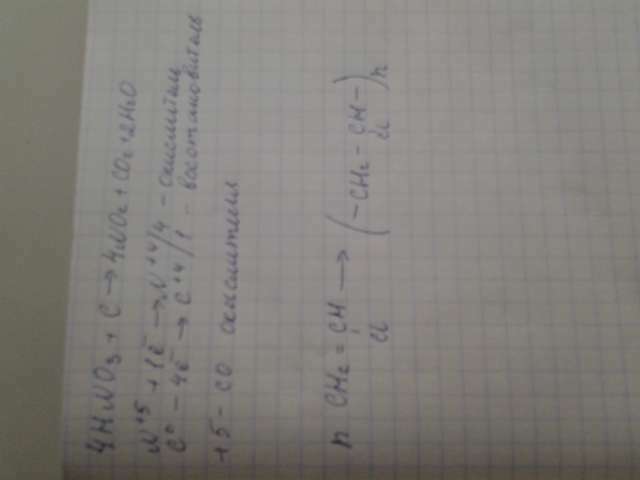 4HNO3 + C → 4NO2 + CO2 + 2H2O
N+5 + 1ē → N+4 / 4 - окислитель
C0 - 4ē → C+4 / 1 - восстановитель
+5 - СО окислителя
n CH2 = CH → (- CH2 - CH -)n
Cl Cl